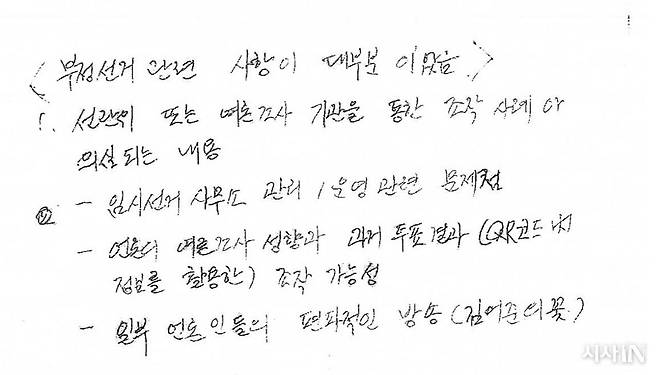 < 부정선거 관련 사항이 대부분 이었음 >
1. 선관위 또는 여론조사 기관을 통한 조작 사례 나
의심 되는 내용
- 임시선거 사무소 관리 / 운영 관련 문제점
②
- 언론의 여론조사 성향과 과거 투표결과 (QR코드 內
정보를 활용한) 조작 가능성
- 일부 언론인들의 편파적인 방송 (김어준의 꽃)
시사IN